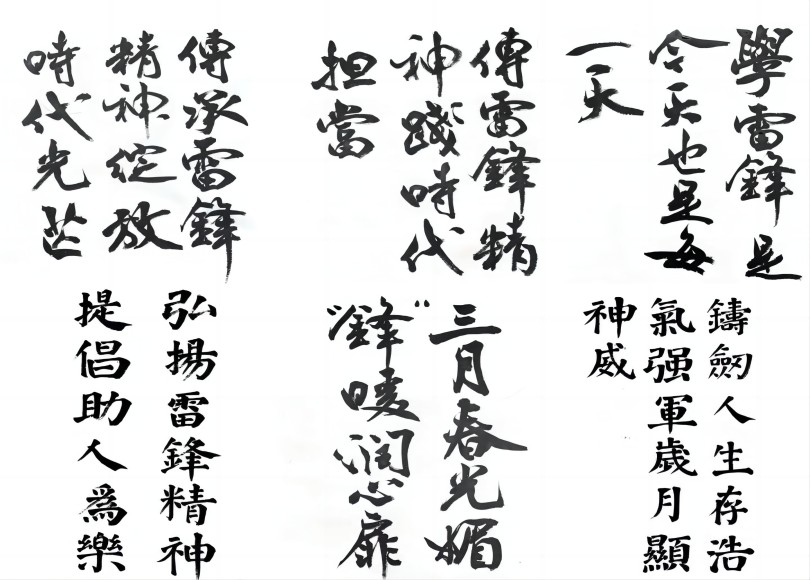 學雷鋒是
今天也是每
一天
傳雷鋒精
神踐時代
担當
傳承雷鋒
精神綻放
時代光芒
鑄劒人生存浩
氣强軍歲月顯
神威
三月春光媚
“鋒”暖润心扉
弘揚雷鋒精神
提倡助人爲樂